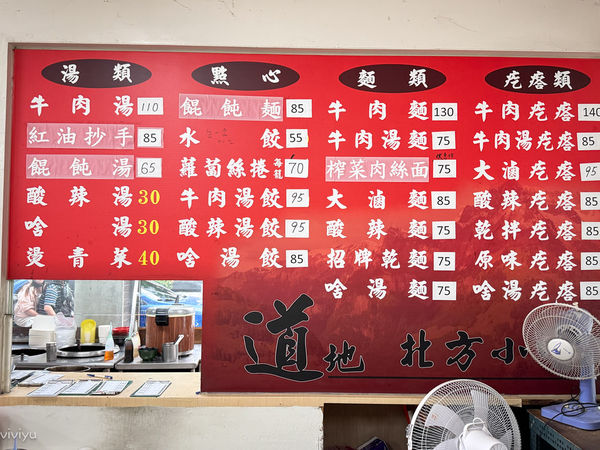 湯類
牛肉湯 110
紅油抄手 85
餛飩湯 65
酸辣湯 30
啥湯 30
燙青菜 40
點心
餛飩麵 85
水餃 55
蘿蔔絲捲 每籠 70
牛肉湯餃 95
酸辣湯餃 95
啥湯餃 85
麵類
牛肉麵 130
牛肉湯麵 75
榨菜肉絲面 75
大滷麵 85
酸辣麵 75
招牌乾麵 75
啥湯麵 75
疙瘩類
牛肉疙瘩 140
牛肉湯疙瘩 85
大滷疙瘩 95
酸辣疙瘩 85
乾拌疙瘩 85
原味疙瘩 85
啥湯疙瘩 85
道地 北方小
viviyu